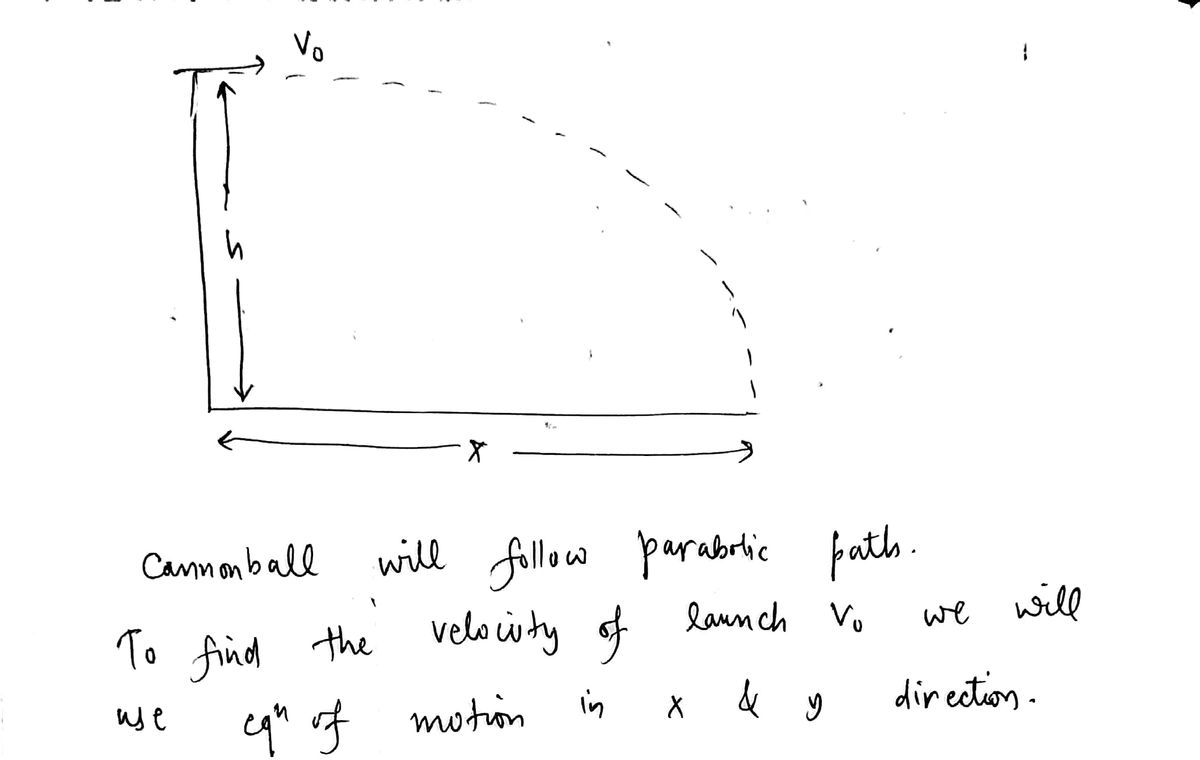 V₀
h
x
Cannonball will follow parabolic path.
To find the velocity of launch V₀ we will
use eqⁿ of motion in x & y direction.